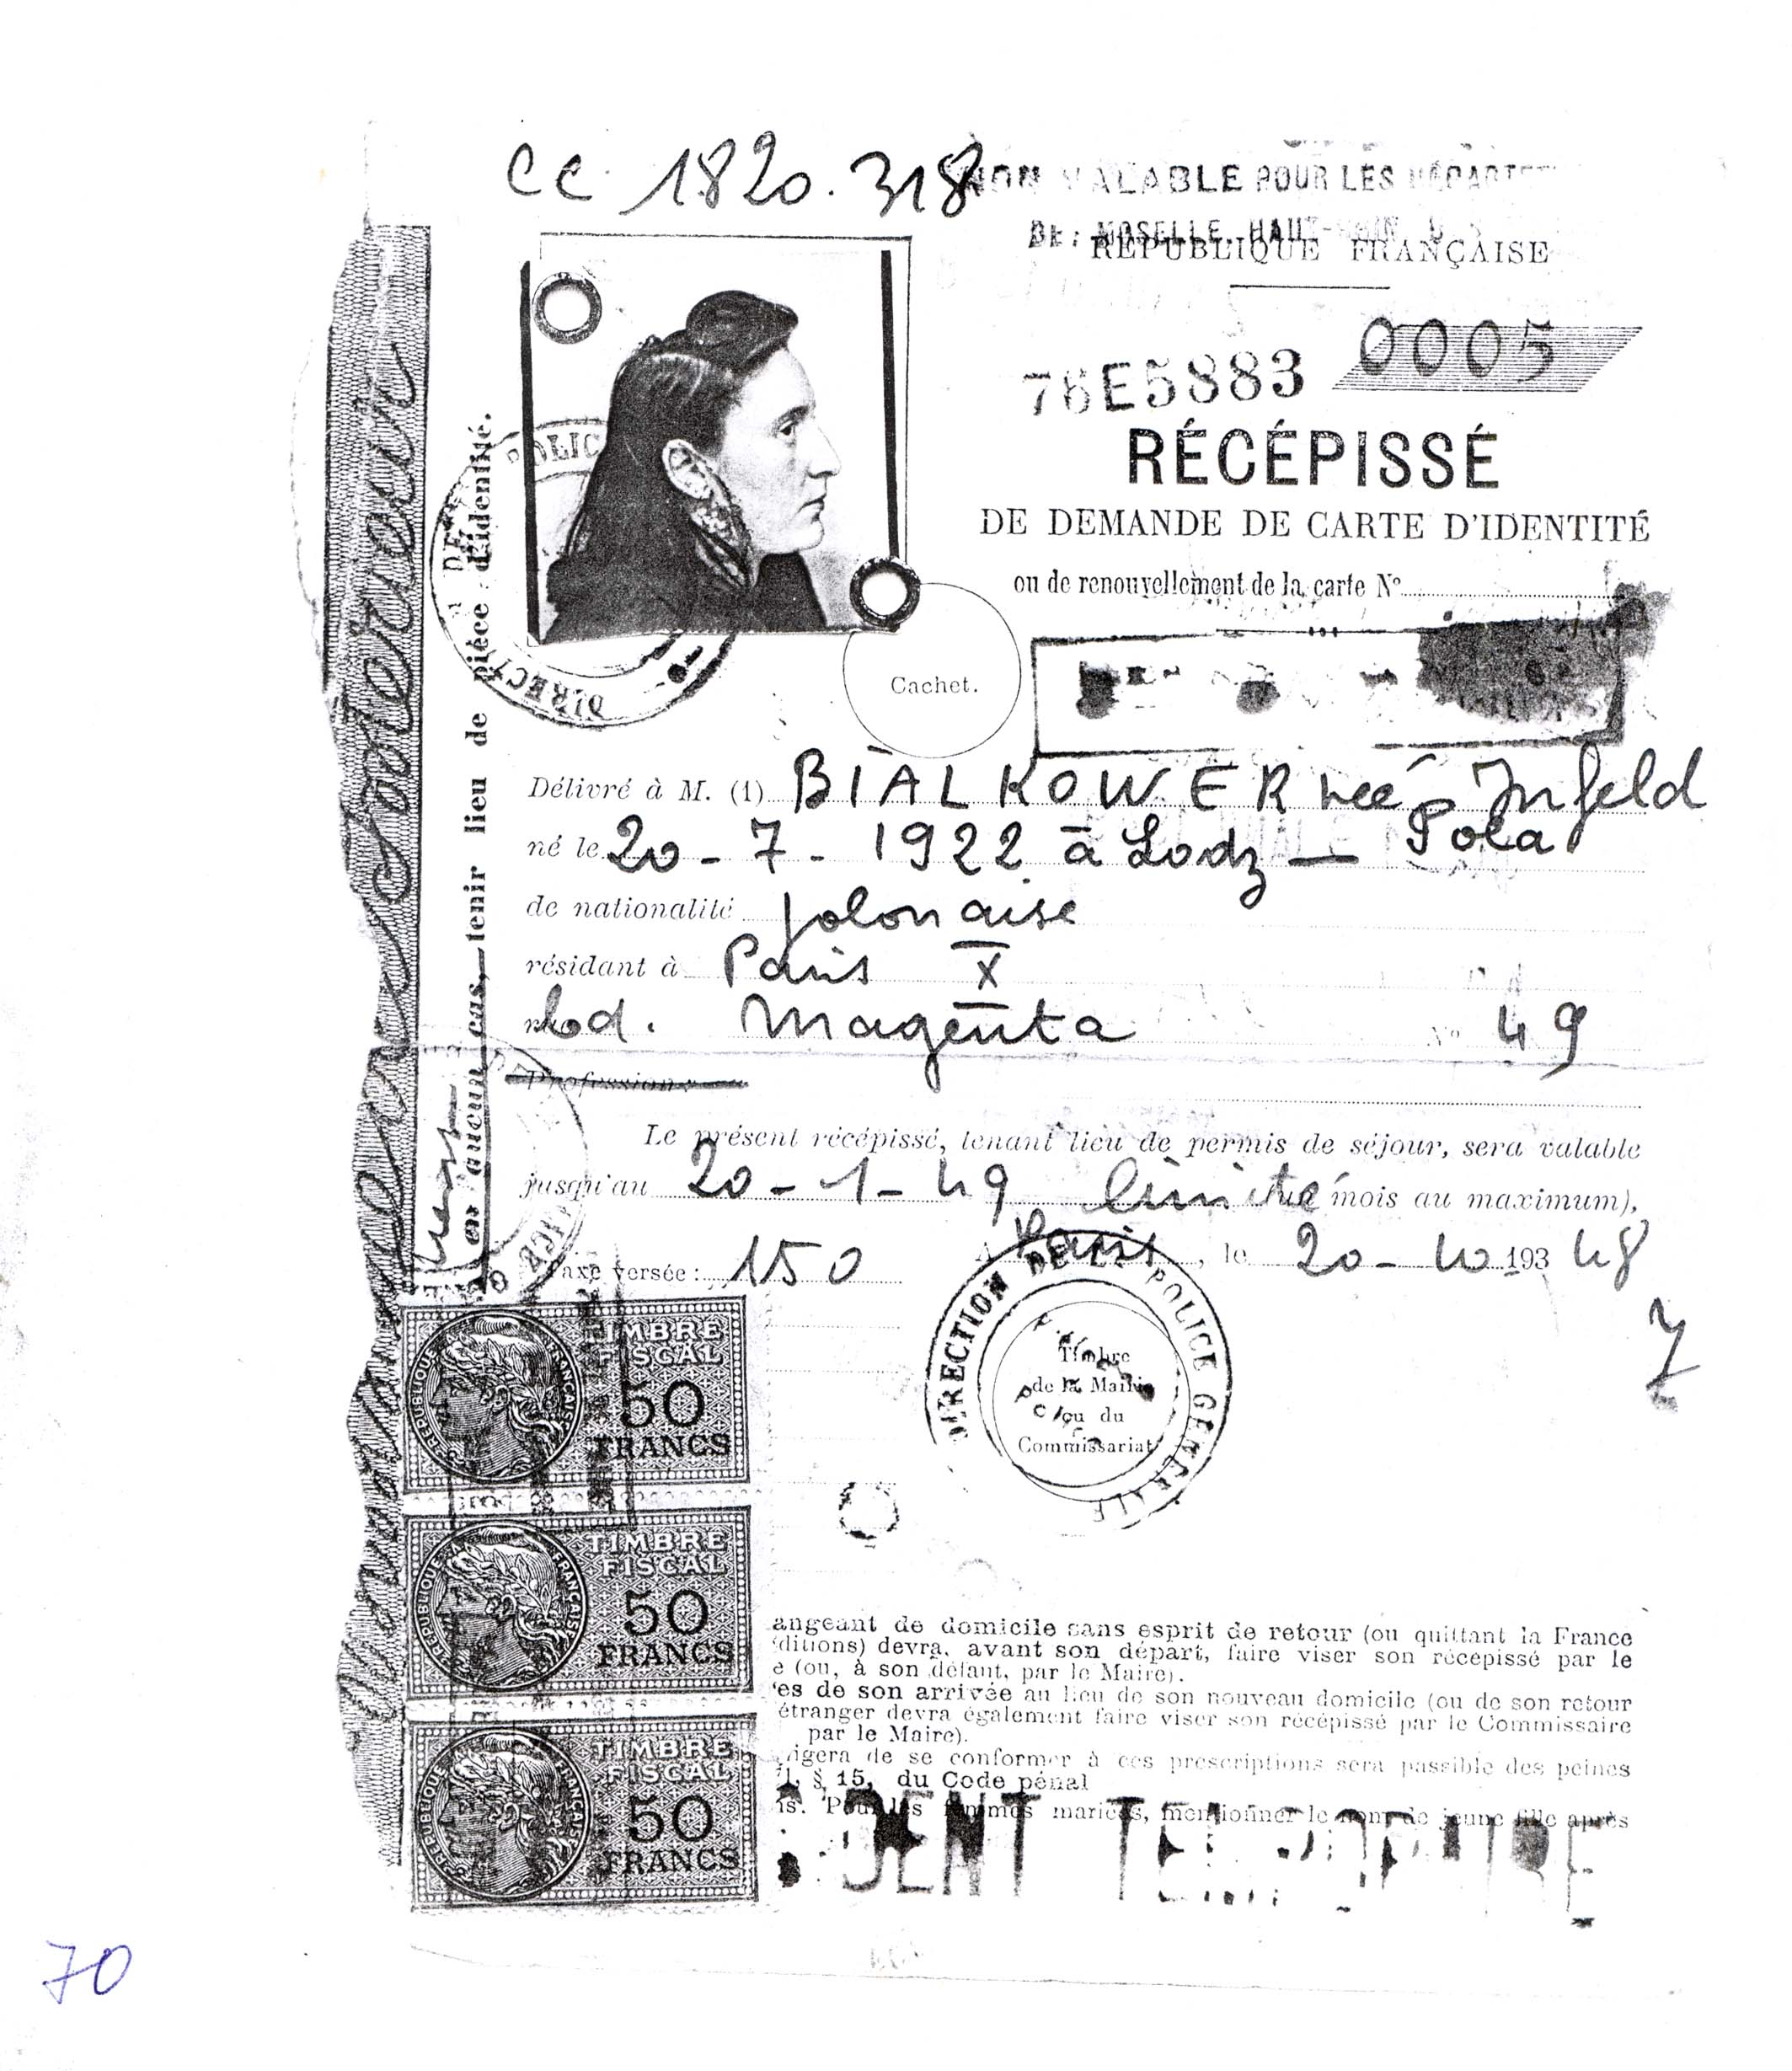 CC 1820.318
NON VALABLE POUR LES
DE: MOSELLE, HAUT-
RÉPUBLIQUE FRANÇAISE
76E5883 0005
RÉCÉPISSÉ
DE DEMANDE DE CARTE D'IDENTITÉ
ou de renouvellement de la carte N°
Cachet.
Délivré à M. (1) BIALKOWER née Infeld
Pola
né le 20-7-1922 à Lodz —
de nationalité polonaise
résidant à Paris X
bd. Magenta N° 49
Profession:
Le présent récépissé, tenant lieu de permis de séjour, sera valable
jusqu'au 20-1-49 limité mois au maximum),
Taxe versée: 150 A Paris, le 20-10 193 48
DIRECTION DE LA POLICE GÉNÉRALE
Timbre
de la Mairie
ou du
Commissariat
TIMBRE
FISCAL
50
FRANCS
RÉPUBLIQUE FRANÇAISE
TIMBRE
FISCAL
50
FRANCS
RÉPUBLIQUE FRANÇAISE
TIMBRE
FISCAL
50
FRANCS
RÉPUBLIQUE FRANÇAISE
angeant de domicile sans esprit de retour (ou quittant la France
ditions) devra, avant son départ, faire viser son récépissé par le
e (ou, à son défaut, par le Maire).
es de son arrivée au lieu de son nouveau domicile (ou de son retour
étranger devra également faire viser son récépissé par le Commissaire
par le Maire).
igera de se conformer à ces prescriptions sera passible des peines
§ 15, du Code pénal
is. Pour les femmes mariées, mentionner le nom de jeune fille après
DENT
en aucun cas, tenir lieu de pièce d'identité.
POLICE
DIRECT
70